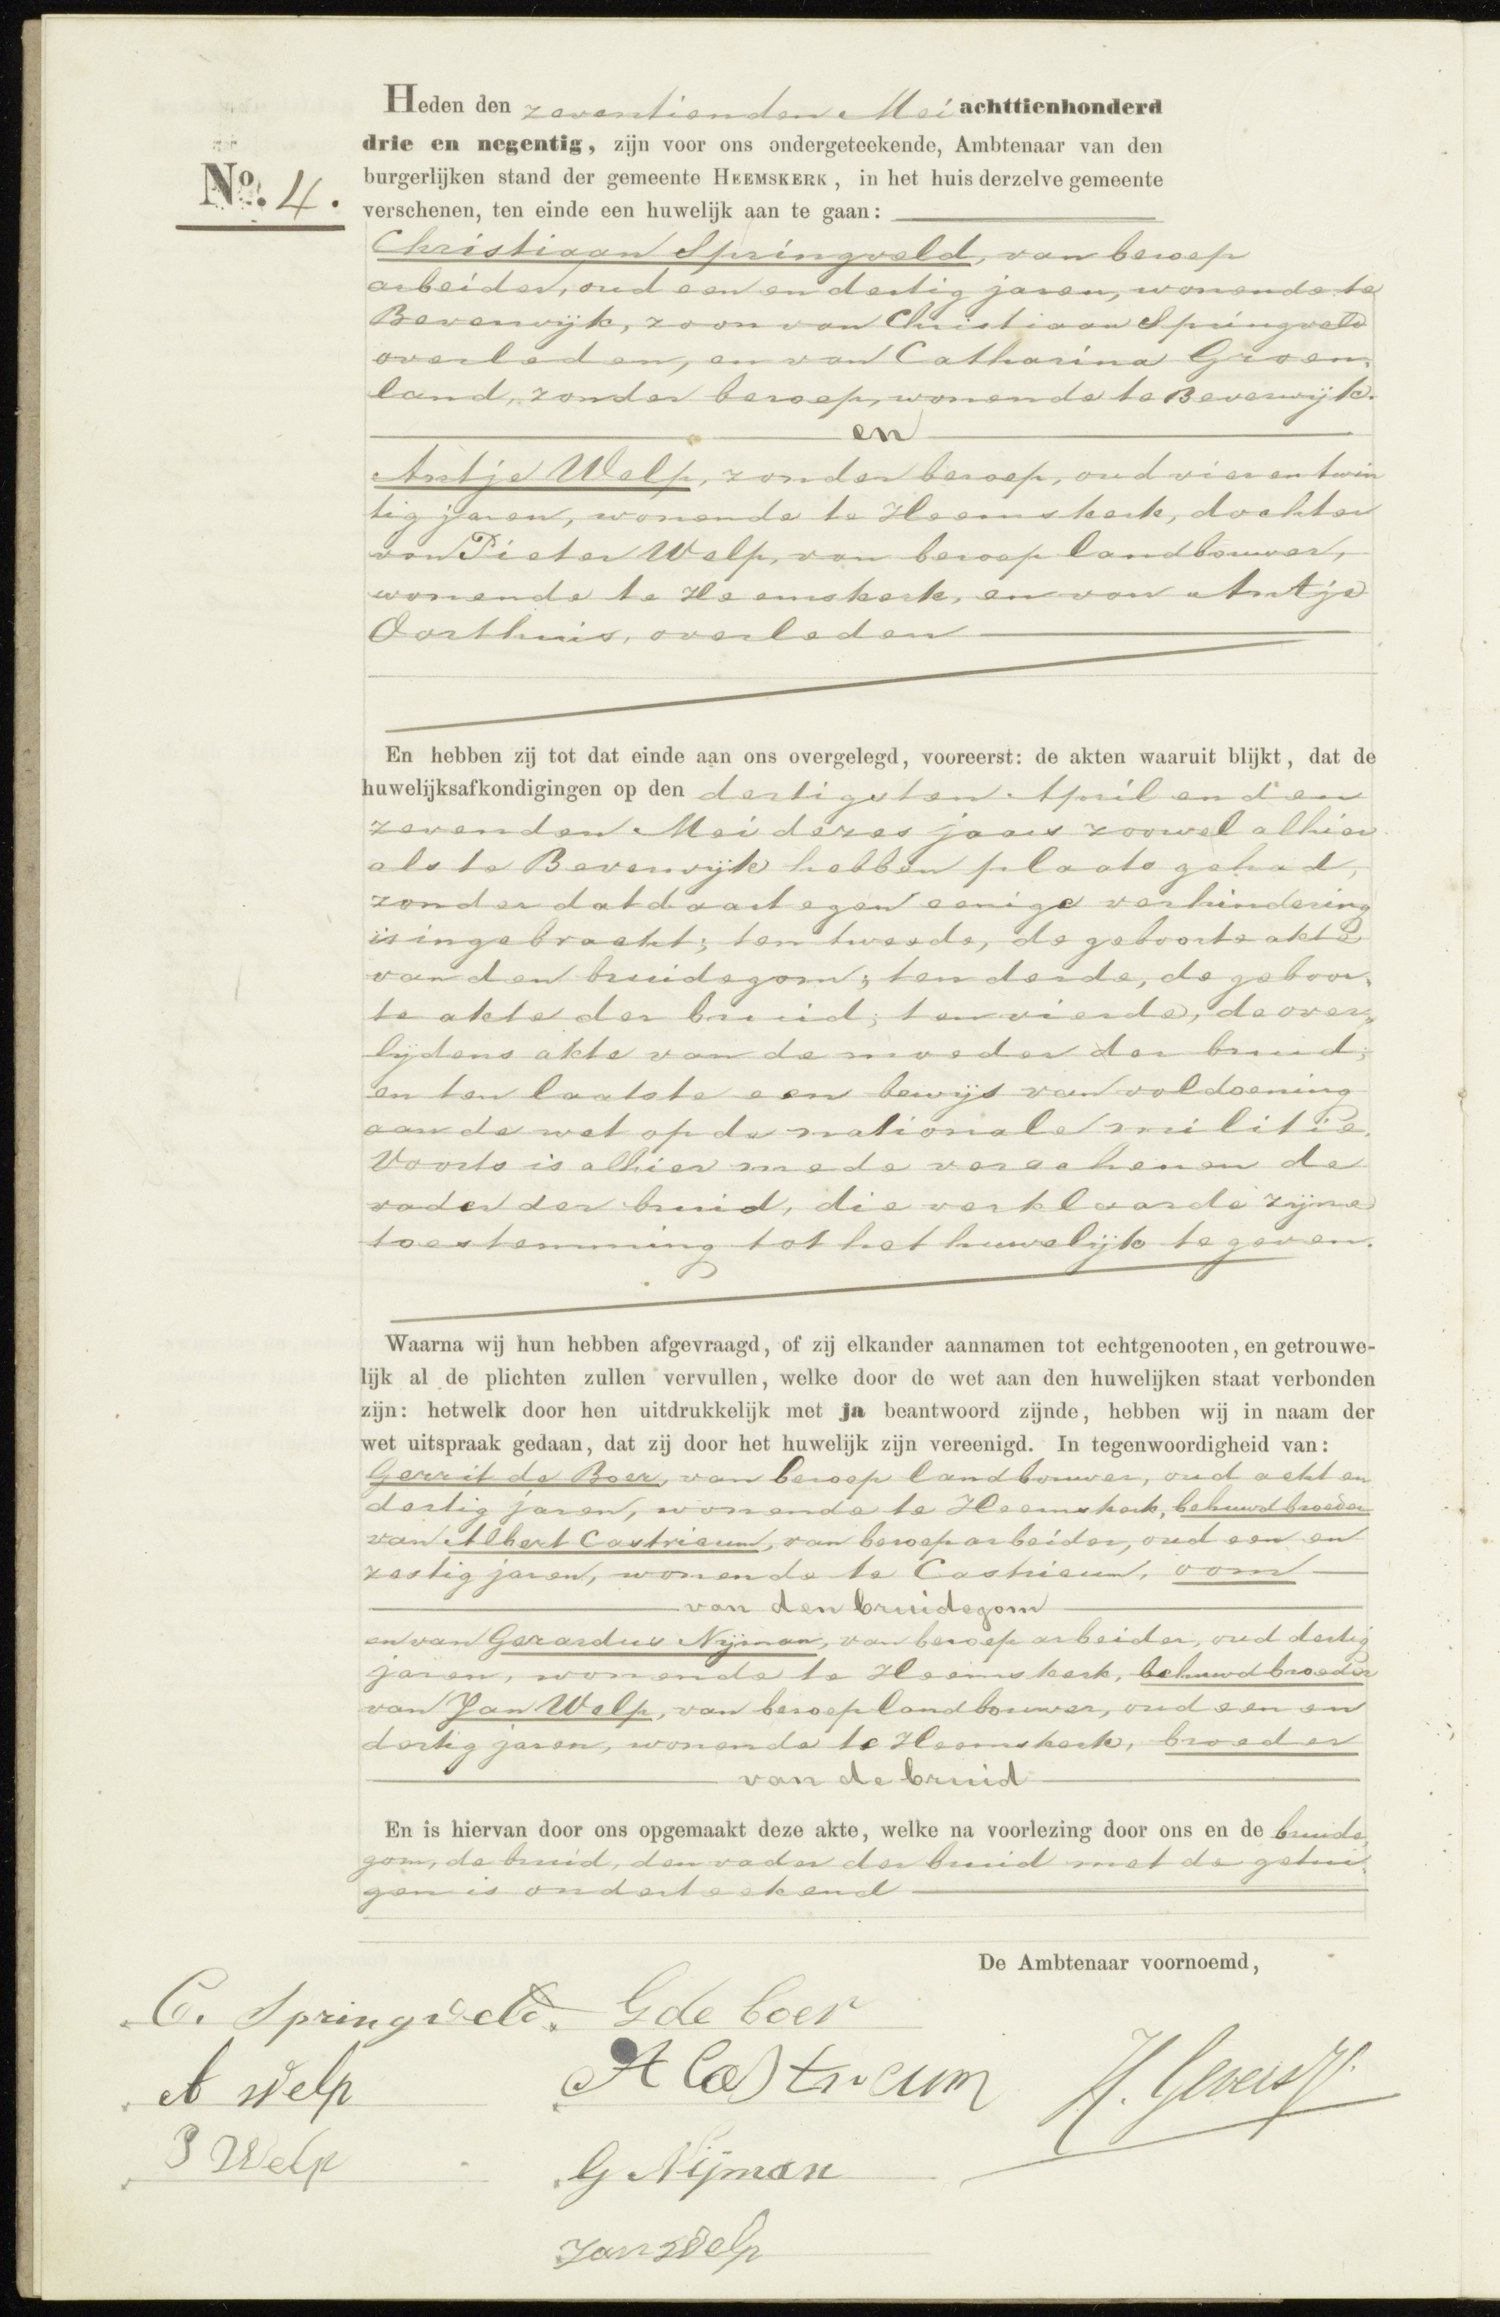 Heden den zeventienden Mei achttienhonderd
drie en negentig, zijn voor ons ondergeteekende, Ambtenaar van den
burgerlijken stand der gemeente HEEMSKERK, in het huis derzelve gemeente
No. 4.
verschenen, ten einde een huwelijk aan te gaan:
Christiaan Springveld, van beroep
arbeider, oud een en dertig jaren, wonende te
Beverwijk, zoon van Christiaan Springveld
overleden, en van Catharina Groen-
land, zonder beroep, wonende te Beverwijk.
en
Antje Welp, zonder beroep, oud vier en twin
tig jaren, wonende te Heemskerk, dochter
van Pieter Welp, van beroep landbouwer,
wonende te Heemskerk, en van Antje
Oorthuis, overleden
En hebben zij tot dat einde aan ons overgelegd, vooreerst: de akten waaruit blijkt, dat de
huwelijksafkondigingen op den dertigsten April en den
zevenden Mei dezes jaars zoowel alhier
als te Beverwijk hebben plaats gehad,
zonder dat daartegen eenige verhindering
is ingebracht; ten tweede, de geboorte akte
van den bruidegom; ten derde, de geboor-
te akte der bruid; ten vierde, de over-
lijdens akte van de moeder der bruid;
en ten laatste een bewijs van voldoening
aan de wet op de nationale militie.
Voorts is alhier mede verschenen de
vader der bruid, die verklaarde zijne
toestemming tot het huwelijk te geven.
Waarna wij hun hebben afgevraagd, of zij elkander aannamen tot echtgenooten, en getrouwe-
lijk al de plichten zullen vervullen, welke door de wet aan den huwelijken staat verbonden
zijn: hetwelk door hen uitdrukkelijk met ja beantwoord zijnde, hebben wij in naam der
wet uitspraak gedaan, dat zij door het huwelijk zijn vereenigd. In tegenwoordigheid van:
Gerrit de Boer, van beroep landbouwer, oud acht en
dertig jaren, wonende te Heemskerk, behuwdbroeder
van Albert Castricum, van beroep arbeider, oud een en
zestig jaren, wonende te Castricum, oom
van den bruidegom
en van Gerardus Nijman, van beroep arbeider, oud dertig
jaren, wonende te Heemskerk, behuwdbroeder
van Jan Welp, van beroep landbouwer, oud een en
dertig jaren, wonende te Heemskerk, broeder
van de bruid
En is hiervan door ons opgemaakt deze akte, welke na voorlezing door ons en de bruide
gom, de bruid, den vader der bruid met de getui-
gen is onderteekend
De Ambtenaar voornoemd,
C. Springveld. G de boer
A Welp A Castricum H. Gevers
P Welp G Nijman
Jan Welp